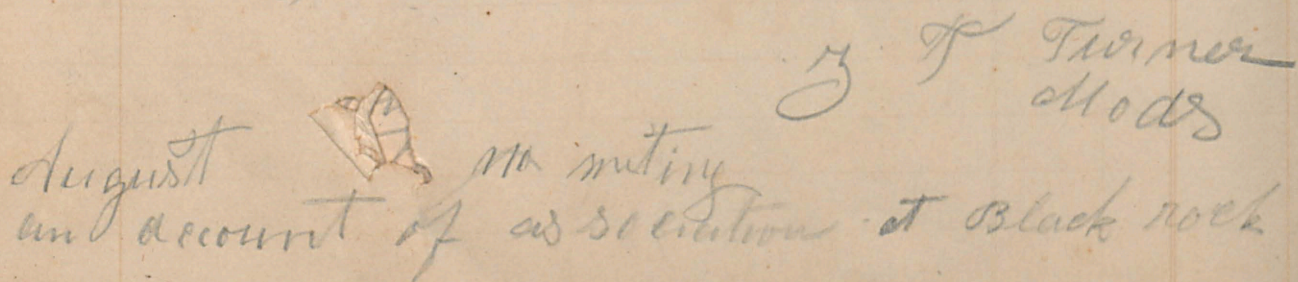 Z T Turner
Mods
August no meting
an account of association at Black rock